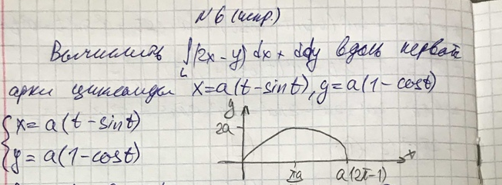 N6 (испр.)
Вычислить ∫(2x-y) dx + xdy вдоль первой
L
арки циклоиды x=a(t-sint), y=a(1-cost)
{x=a(t-sint)
{y=a(1-cost)
y
2a
πa
a(2π-1)
x